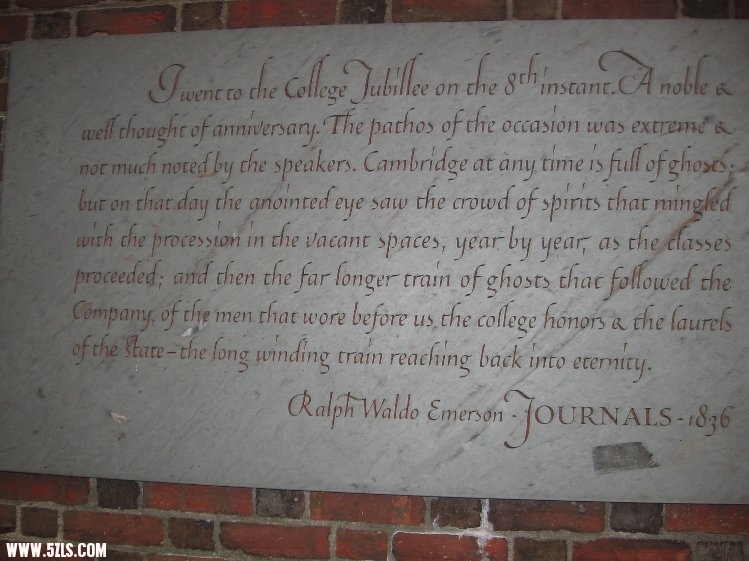 I went to the College Jubillee on the 8th instant. A noble &
well thought of anniversary. The pathos of the occasion was extreme &
not much noted by the speakers. Cambridge at any time is full of ghosts;
but on that day the anointed eye saw the crowd of spirits that mingled
with the procession in the vacant spaces, year by year, as the classes
proceeded; and then the far longer train of ghosts that followed the
Company, of the men that wore before us the college honors & the laurels
of the State—the long winding train reaching back into eternity.
Ralph Waldo Emerson · JOURNALS - 1836
WWW.5ZLS.COM